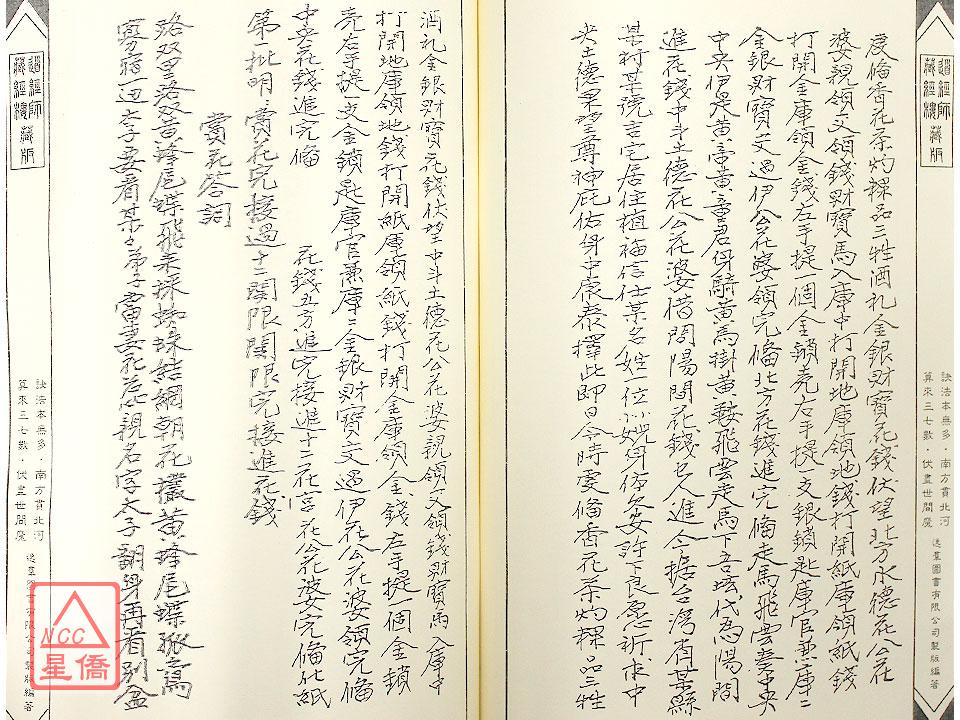 道經師
藏經樓
藏版
訣法本無多．南方貫北河
算來三七數．伏盡世間魔
逸羣圖書有限公司製版編著
虔備香花茶灼粿品三牲酒礼金銀財寶花錢伏望北方水德花公花
婆親領文領錢財寶馬入庫中打開地庫領地錢打開紙庫領紙錢
打開金庫領金錢左手提一個金鎖売右手提一支銀鎖匙庫官兼庫二
金銀財寶交過伊公花婆領完備北方花錢進完備走馬飛雲奏中央
中央伊是黃帝黃童君身騎黃馬掛黃鞍飛雲走馬下吾壇代為陽間
進花錢中斗土德花公花婆借問陽間花錢乜人進今据台灣省某縣
某村某号吉宅居住植福信仕某名姓一位小姓身依矣妄許下良愿祈求中
央土德星望尊神庇佑身中康泰擇此即日今時虔備香花茶灼粿品三牲
酒礼金銀財寶花錢伏望中斗土德花公花婆親領文領錢財寶馬入庫中
打開地庫領地錢打開紙庫領紙錢打開金庫領金錢左手提一個金鎖
売右手提一支金鎖匙庫官兼庫二金銀財寶交過伊花公花婆領完備
中央花錢進完備 花錢五方進完接進十二花宮花公花婆完備化紙
第一批明々賞花完接過十二関限関限完接進花錢
賞花答詞
路双里路双黃蜂尾蝶飛來採蜘蛛結網朝花欉黃蜂尾蝶孤鳥
窮宿一边太子要看某々弟子當妻死尪親名字太子翻身再看別盆
道經師
藏經樓
藏版
訣法本無多．南方貫北河
算來三七數．伏盡世間魔
逸羣圖書有限公司製版編著
NCC
星僑